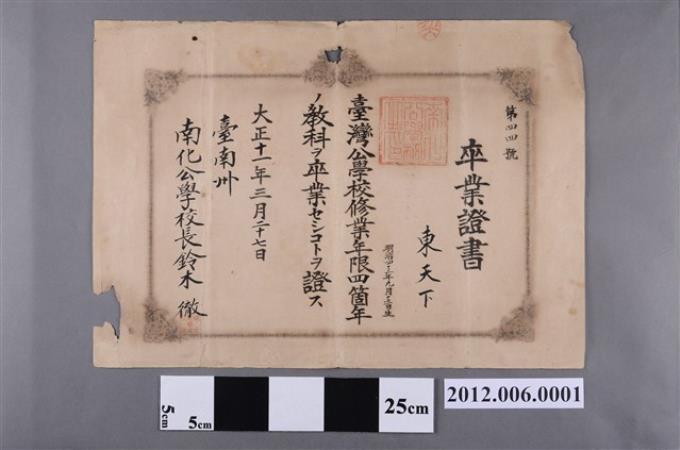 第四四號
卒業證書
東天下
明治四三年九月三日生
臺灣公學校修業年限四箇年
ノ教科ヲ卒業セシコトヲ證ス
大正十一年三月二十七日
臺南州
南化公學校長鈴木徹
2012.006.0001
5cm
5cm
25cm